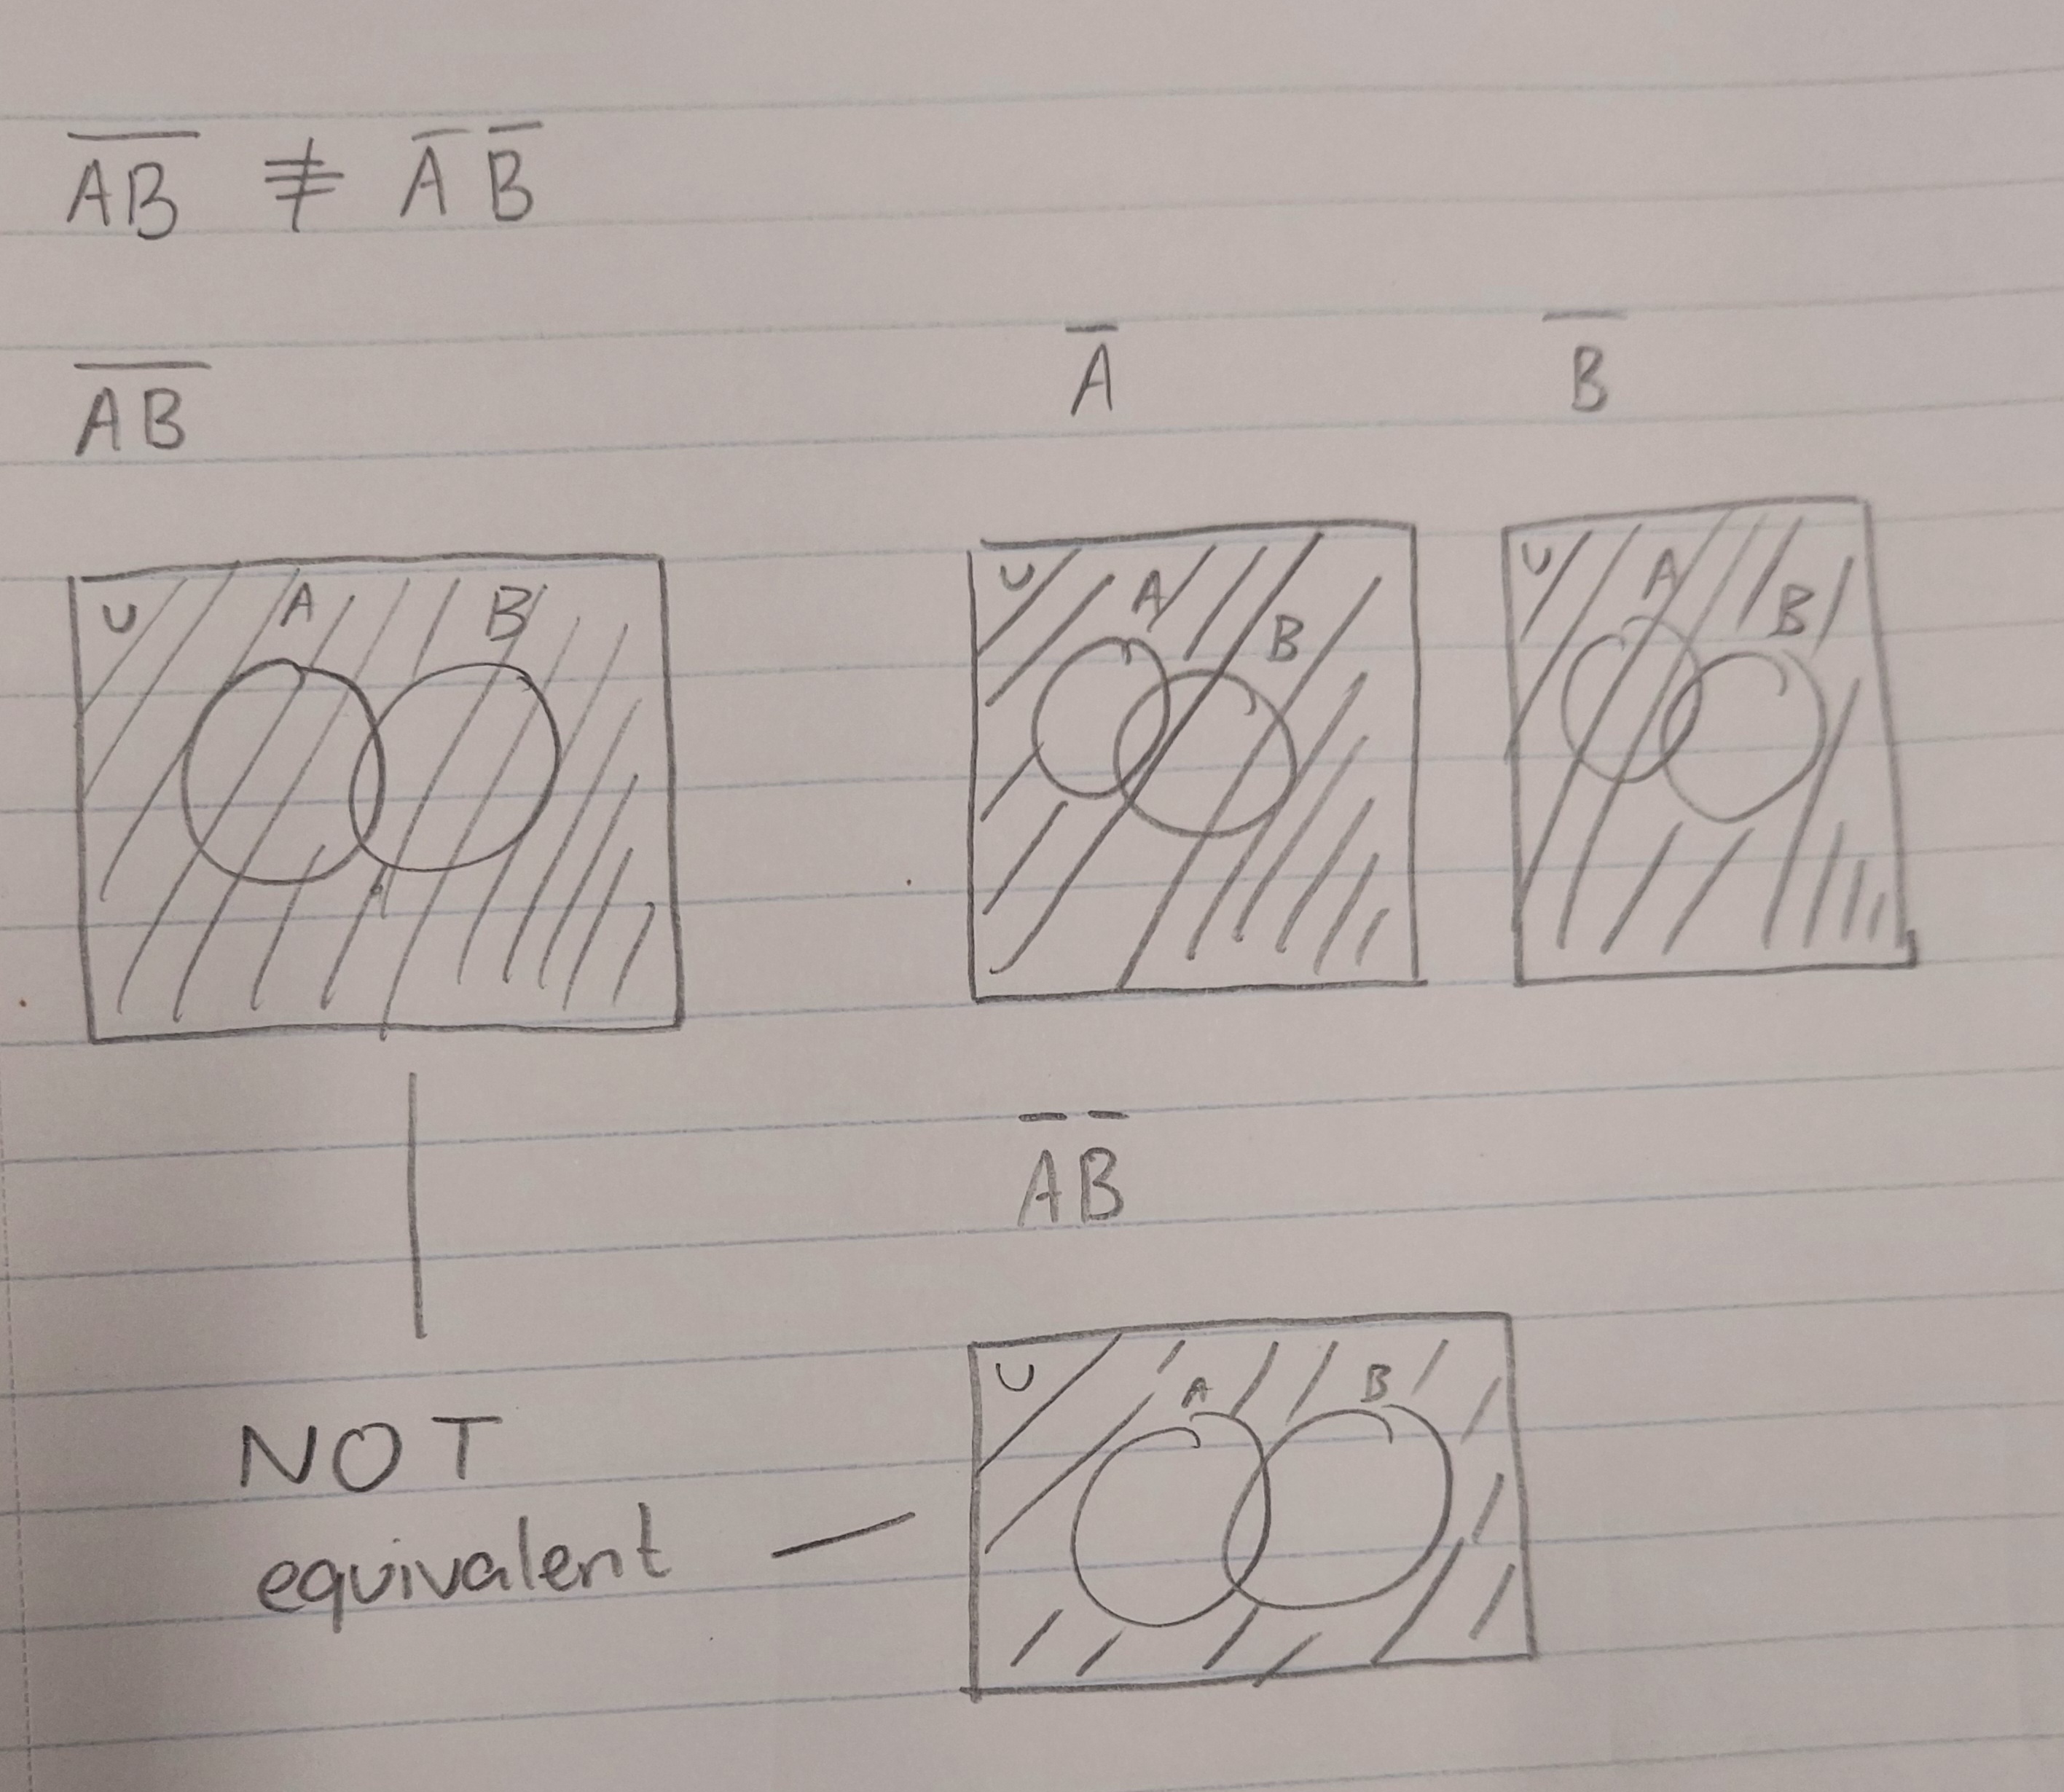 A̅B̅ ≢ A̅ B̅
A̅B̅
A̅ B̅
U A B
U A B
U A B
A̅ B̅
U A B
NOT
equivalent